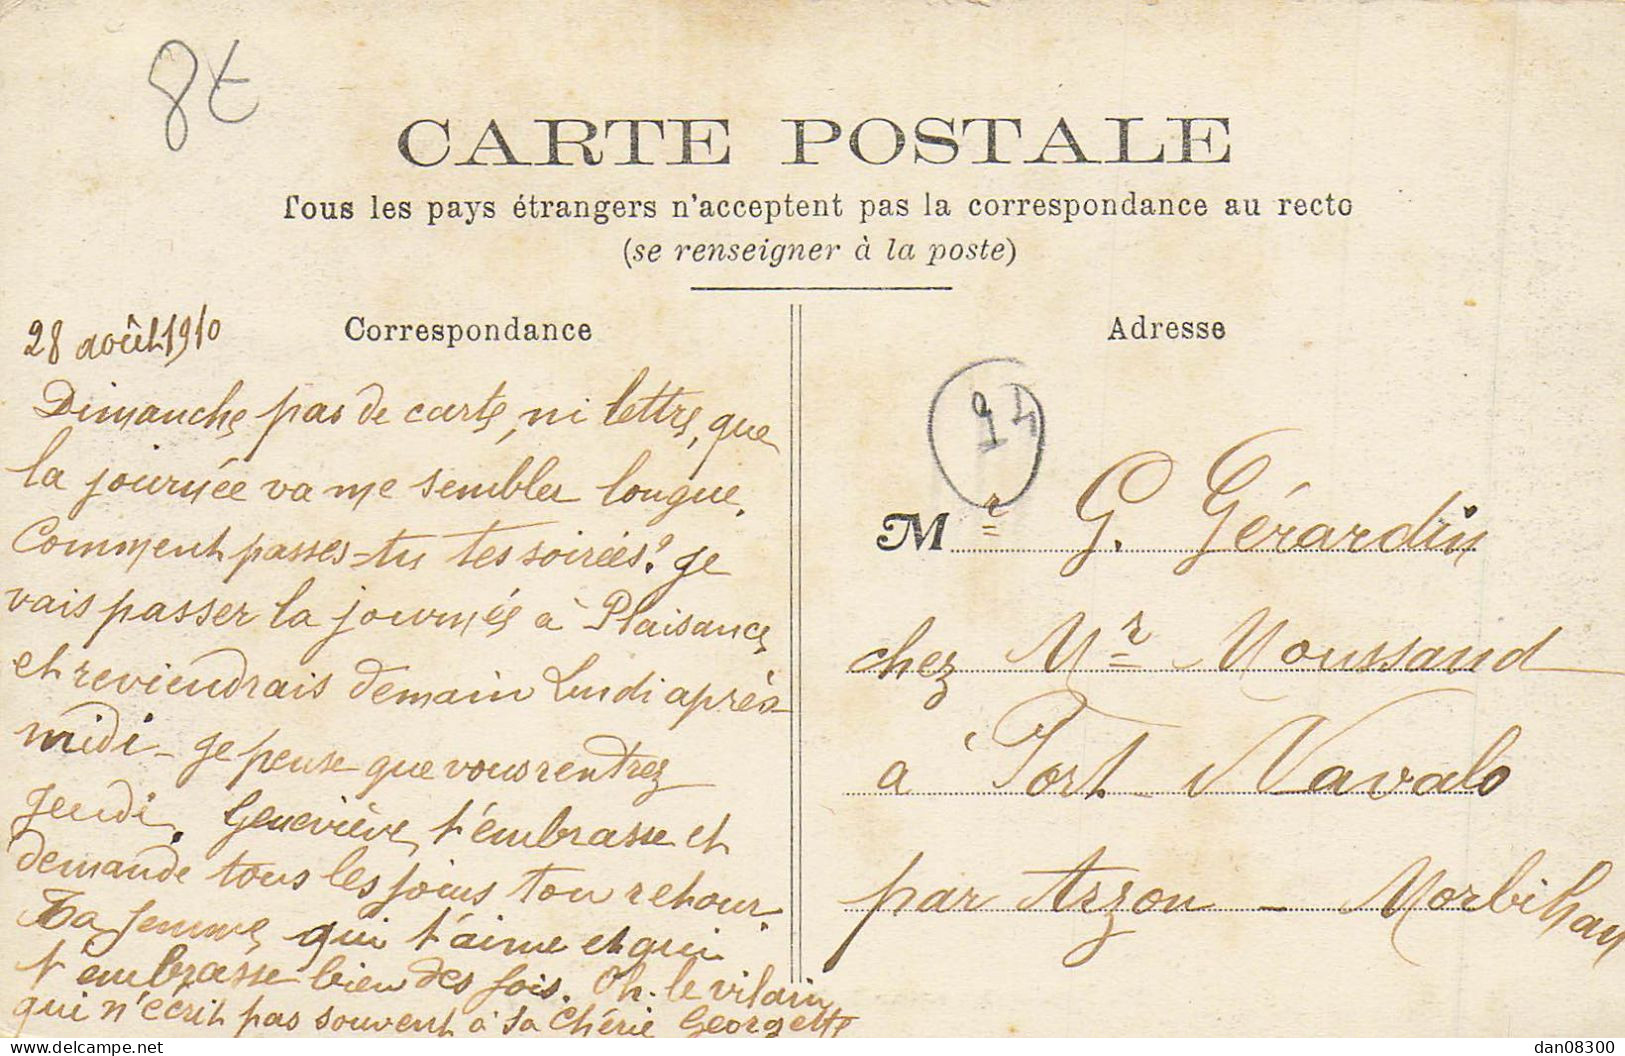 8t
CARTE POSTALE
Tous les pays étrangers n'acceptent pas la correspondance au recto
(se renseigner à la poste)
28 août 1910
Correspondance
Dimanche pas de carte, ni lettre, que
la journée va me sembler longue.
Comment passes-tu tes soirées? Je
vais passer la journée à Plaisance
et reviendrais demain Lundi après-
midi - Je pense que vous rentrez
Jeudi. Geneviève t'embrasse et
demande tous les jours ton retour.
Ta femme qui t'aime et qui
t'embrasse bien des fois. Oh. le vilain
qui n'écrit pas souvent à sa Chérie Georgette
Adresse
14
Mr G. Gérardin
chez Mr Moussaud
à Port-Navalo
par Arzon - Morbihan
dan08300